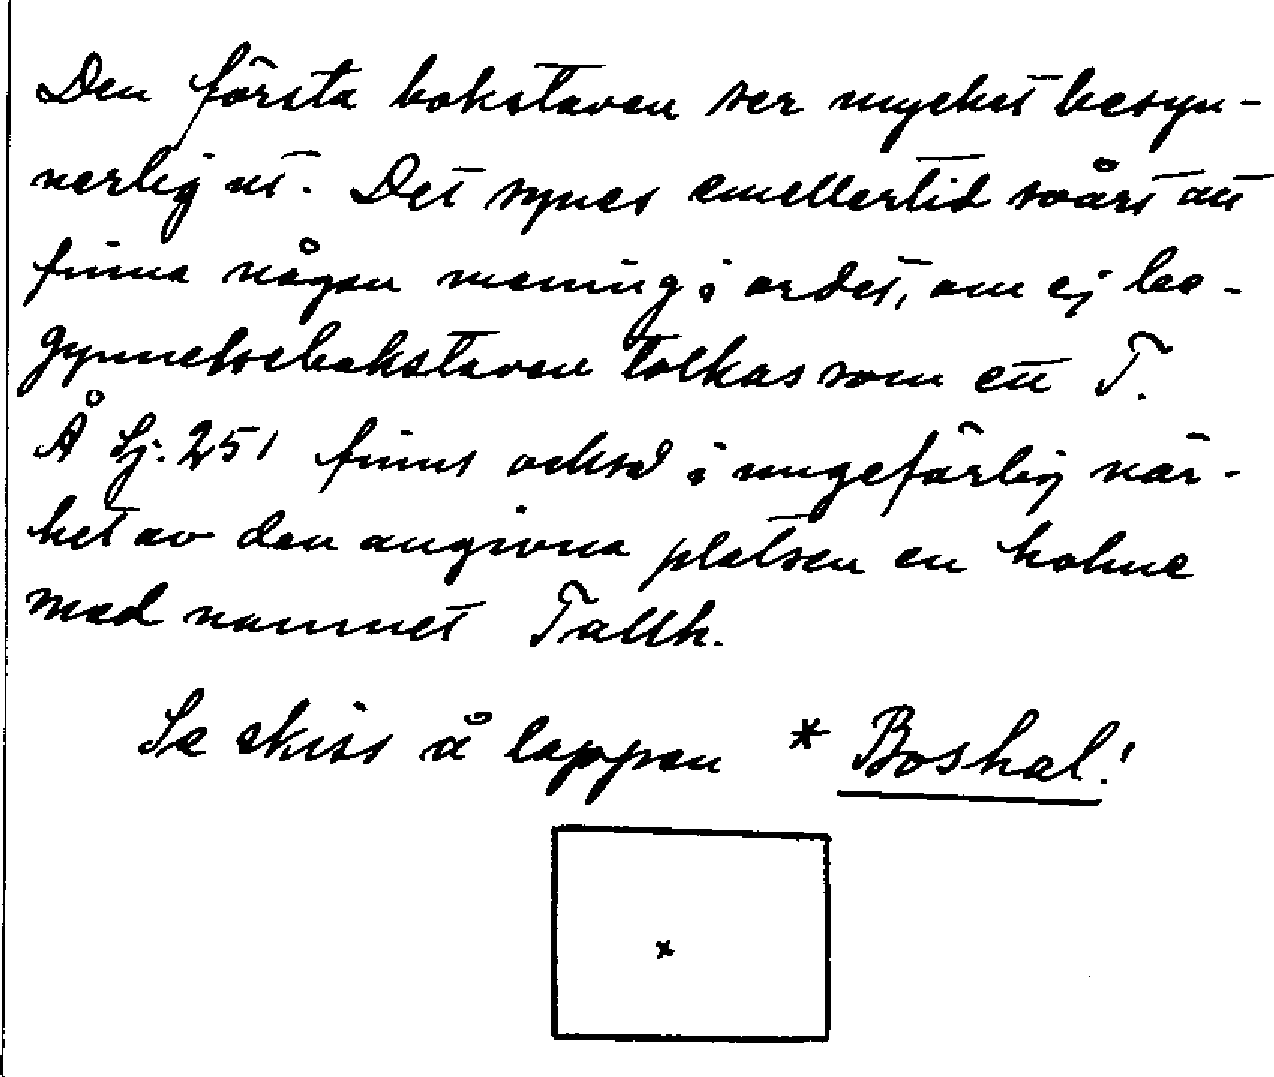 Den första bokstaven ser mycket besyn-
nerlig ut. Det synes emellertid svårt att
finna någon mening i ordet, om ej be-
gynnelsebokstaven tolkas som ett T.
Å Sj. 251 finns också i ungefärlig när-
het av den angivna platsen en holme
med namnet Tallh.
Se skiss å lappen * Boshal.!